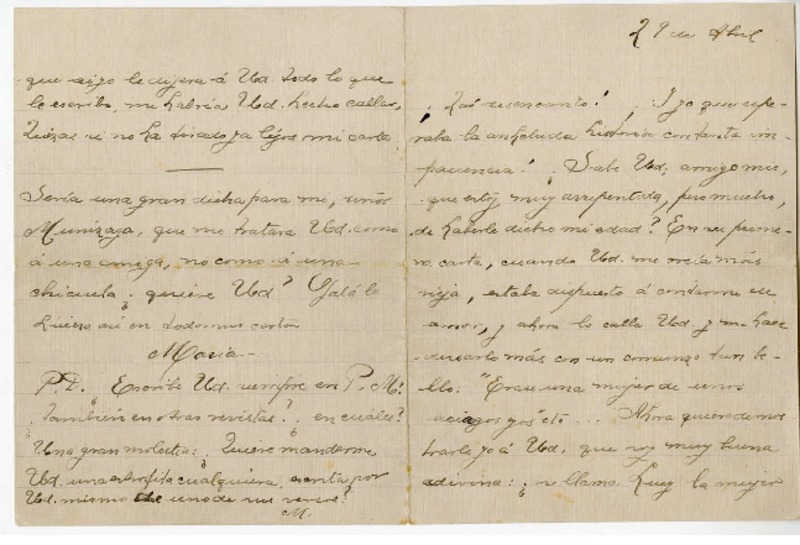 29 de Abril
¡Qué desencanto! ¡Y yo que espe-
raba la anhelada historia con tanta im-
paciencia! ¿Sabe Ud; amigo mio,
que estoy muy arrepentida, pero mucho,
de haberle dicho mi edad? En su prime-
ra carta, cuando Ud. me creía más
vieja, estaba dispuesto á contarme su
amor, y ahora lo calla Ud. y me hace
desearlo más con un comienzo tan be-
llo: "Erase una mujer de unos
aciagos ojos" etc... Ahora quiero demos-
trarle yo á Ud. que soy muy buena
adivina: ¿se llama Luz la mujer
que
le dijera á Ud. todo lo que
le escribo, me habría Ud. hecho callar,
Quizas si no ha tirado ya lejos mi carta.
Sería una gran dicha para mí, señor
Munizaga, que me tratara Ud. como
á una amiga, no como á una
chicuela ¿quiere Ud? Ojalá lo
hiciera así en todas mis cartas
María
P.D. Escribe Ud. siempre en P. M?
¿También en otras revistas? ¿en cuáles?
Una gran molestia: ¿Quiere mandarme
Ud. una estrofita cualquiera, escrita por
Ud. mismo de uno de sus versos?
M.